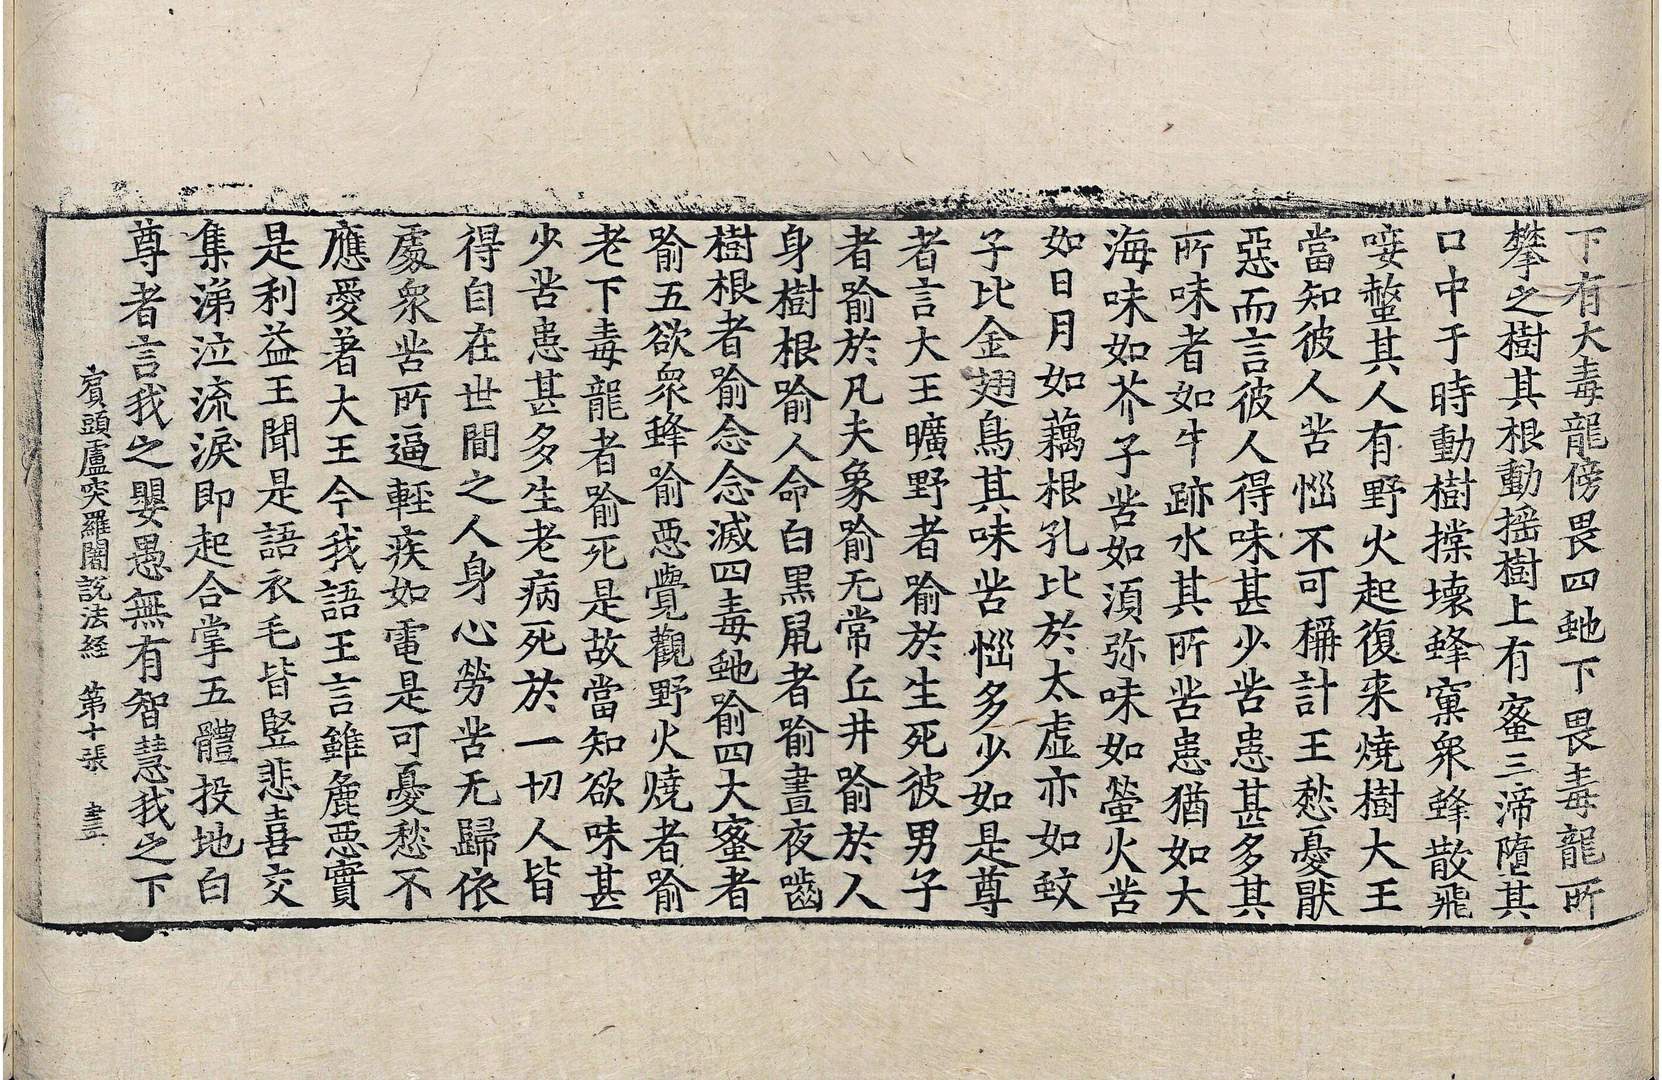 下有大毒龍傍畏四虵下畏毒龍所
攀之樹其根動搖樹上有蜜三渧墮其
口中于時動樹摚壞蜂窠衆蜂散飛
唼螫其人有野火起復來燒樹大王
當知彼人苦惱不可稱計王愁憂猒
惡而言彼人得味甚少苦患甚多其
所味者如牛跡水其所苦患猶如大
海味如芥子苦如湏弥味如螢火苦
如日月如藕根孔比於太虛亦如蚊
子比金翅鳥其味苦惱多少如是尊
者言大王曠野者喻於生死彼男子
者喻於凡夫象喻无常丘井喻於人
身樹根喻人命白黑鼠者喻晝夜齧
樹根者喻念念滅四毒虵喻四大蜜者
喻五欲衆蜂喻惡覺觀野火燒者喻
老下毒龍者喻死是故當知欲味甚
少苦患甚多生老病死於一切人皆
得自在世間之人身心勞苦无歸依
處衆苦所逼輕疾如電是可憂愁不
應愛著大王今我語王言雖麁惡實
是利益王聞是語衣毛皆竪悲喜交
集涕泣流淚即起合掌五體投地白
賓頭盧突羅闍說法經 第十張 晝
尊者言我之嬰愚無有智慧我之下